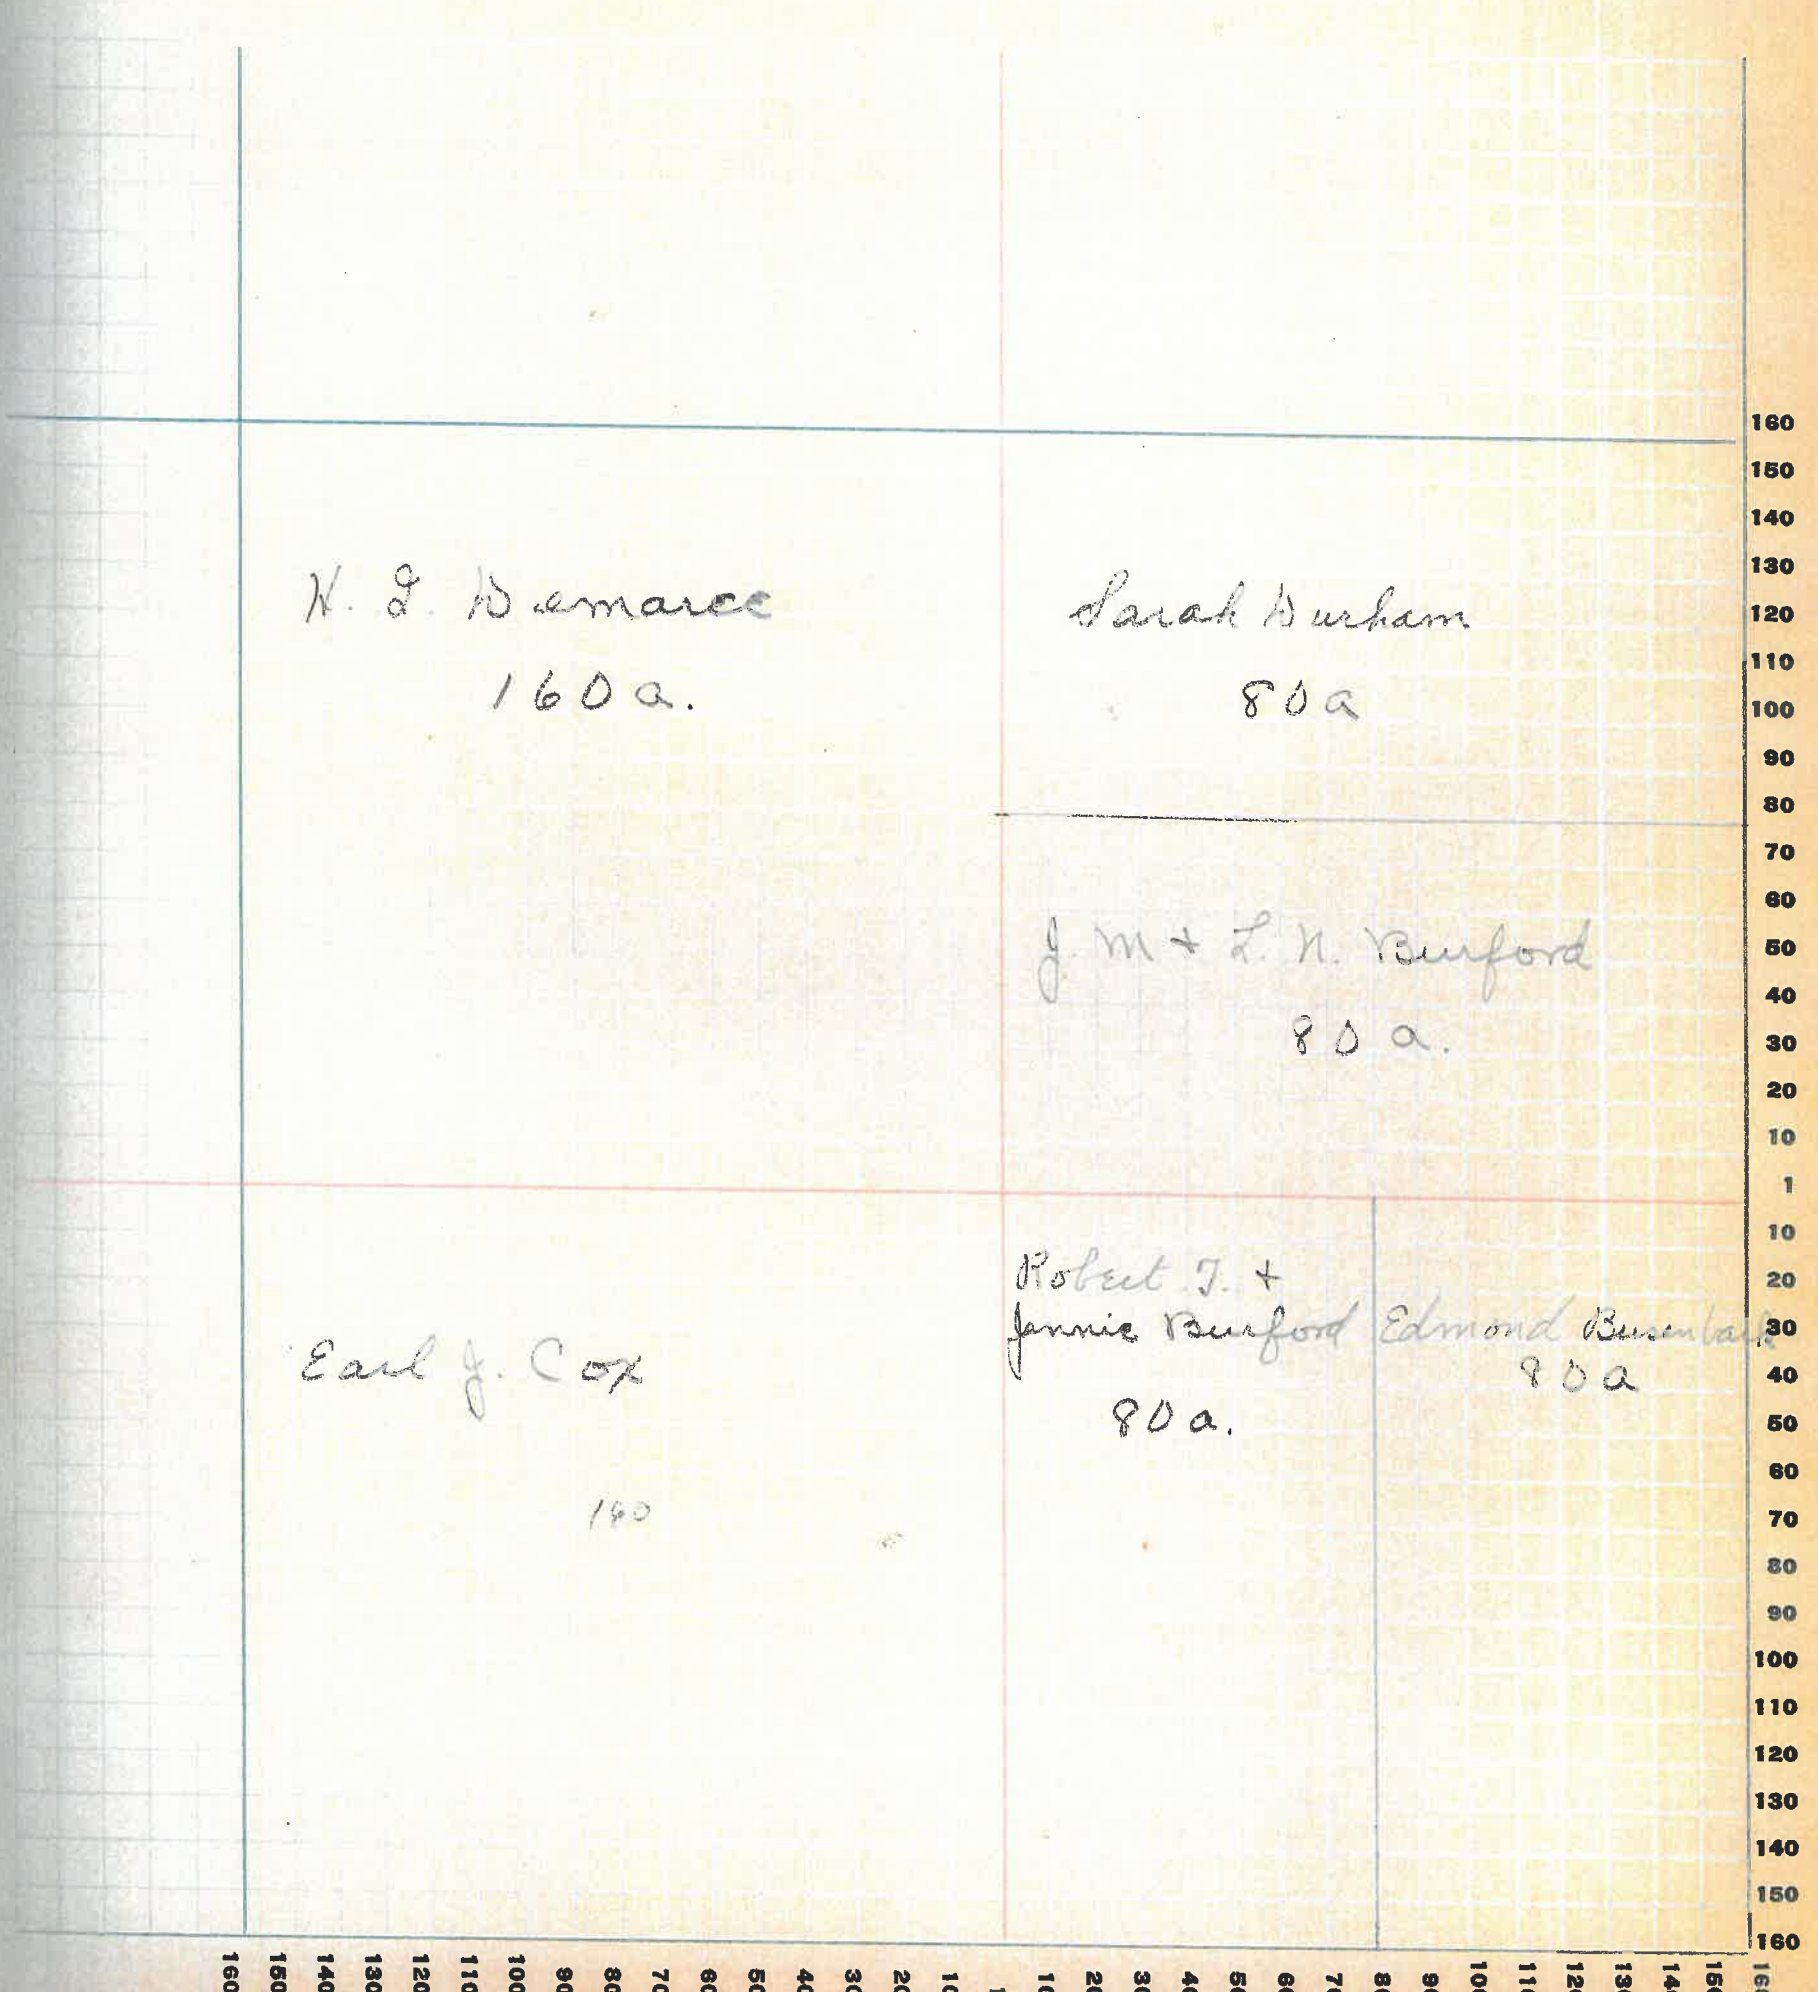 H. L. Demaree
160 a.
Sarah Durham
80 a
J. M + L. N. Burford
80 a.
Robert T. +
Jennie Burford
80 a.
Edmond Busenbark
80 a
Earl J. Cox
160
160
150
140
130
120
110
100
90
80
70
60
50
40
30
20
10
1
10
20
30
40
50
60
70
80
90
100
110
120
130
140
150
160
160 150 140 130 120 110 100 90 80 70 60 50 40 30 20 10 1 10 20 30 40 50 60 70 80 90 100 110 120 130 140 150 160